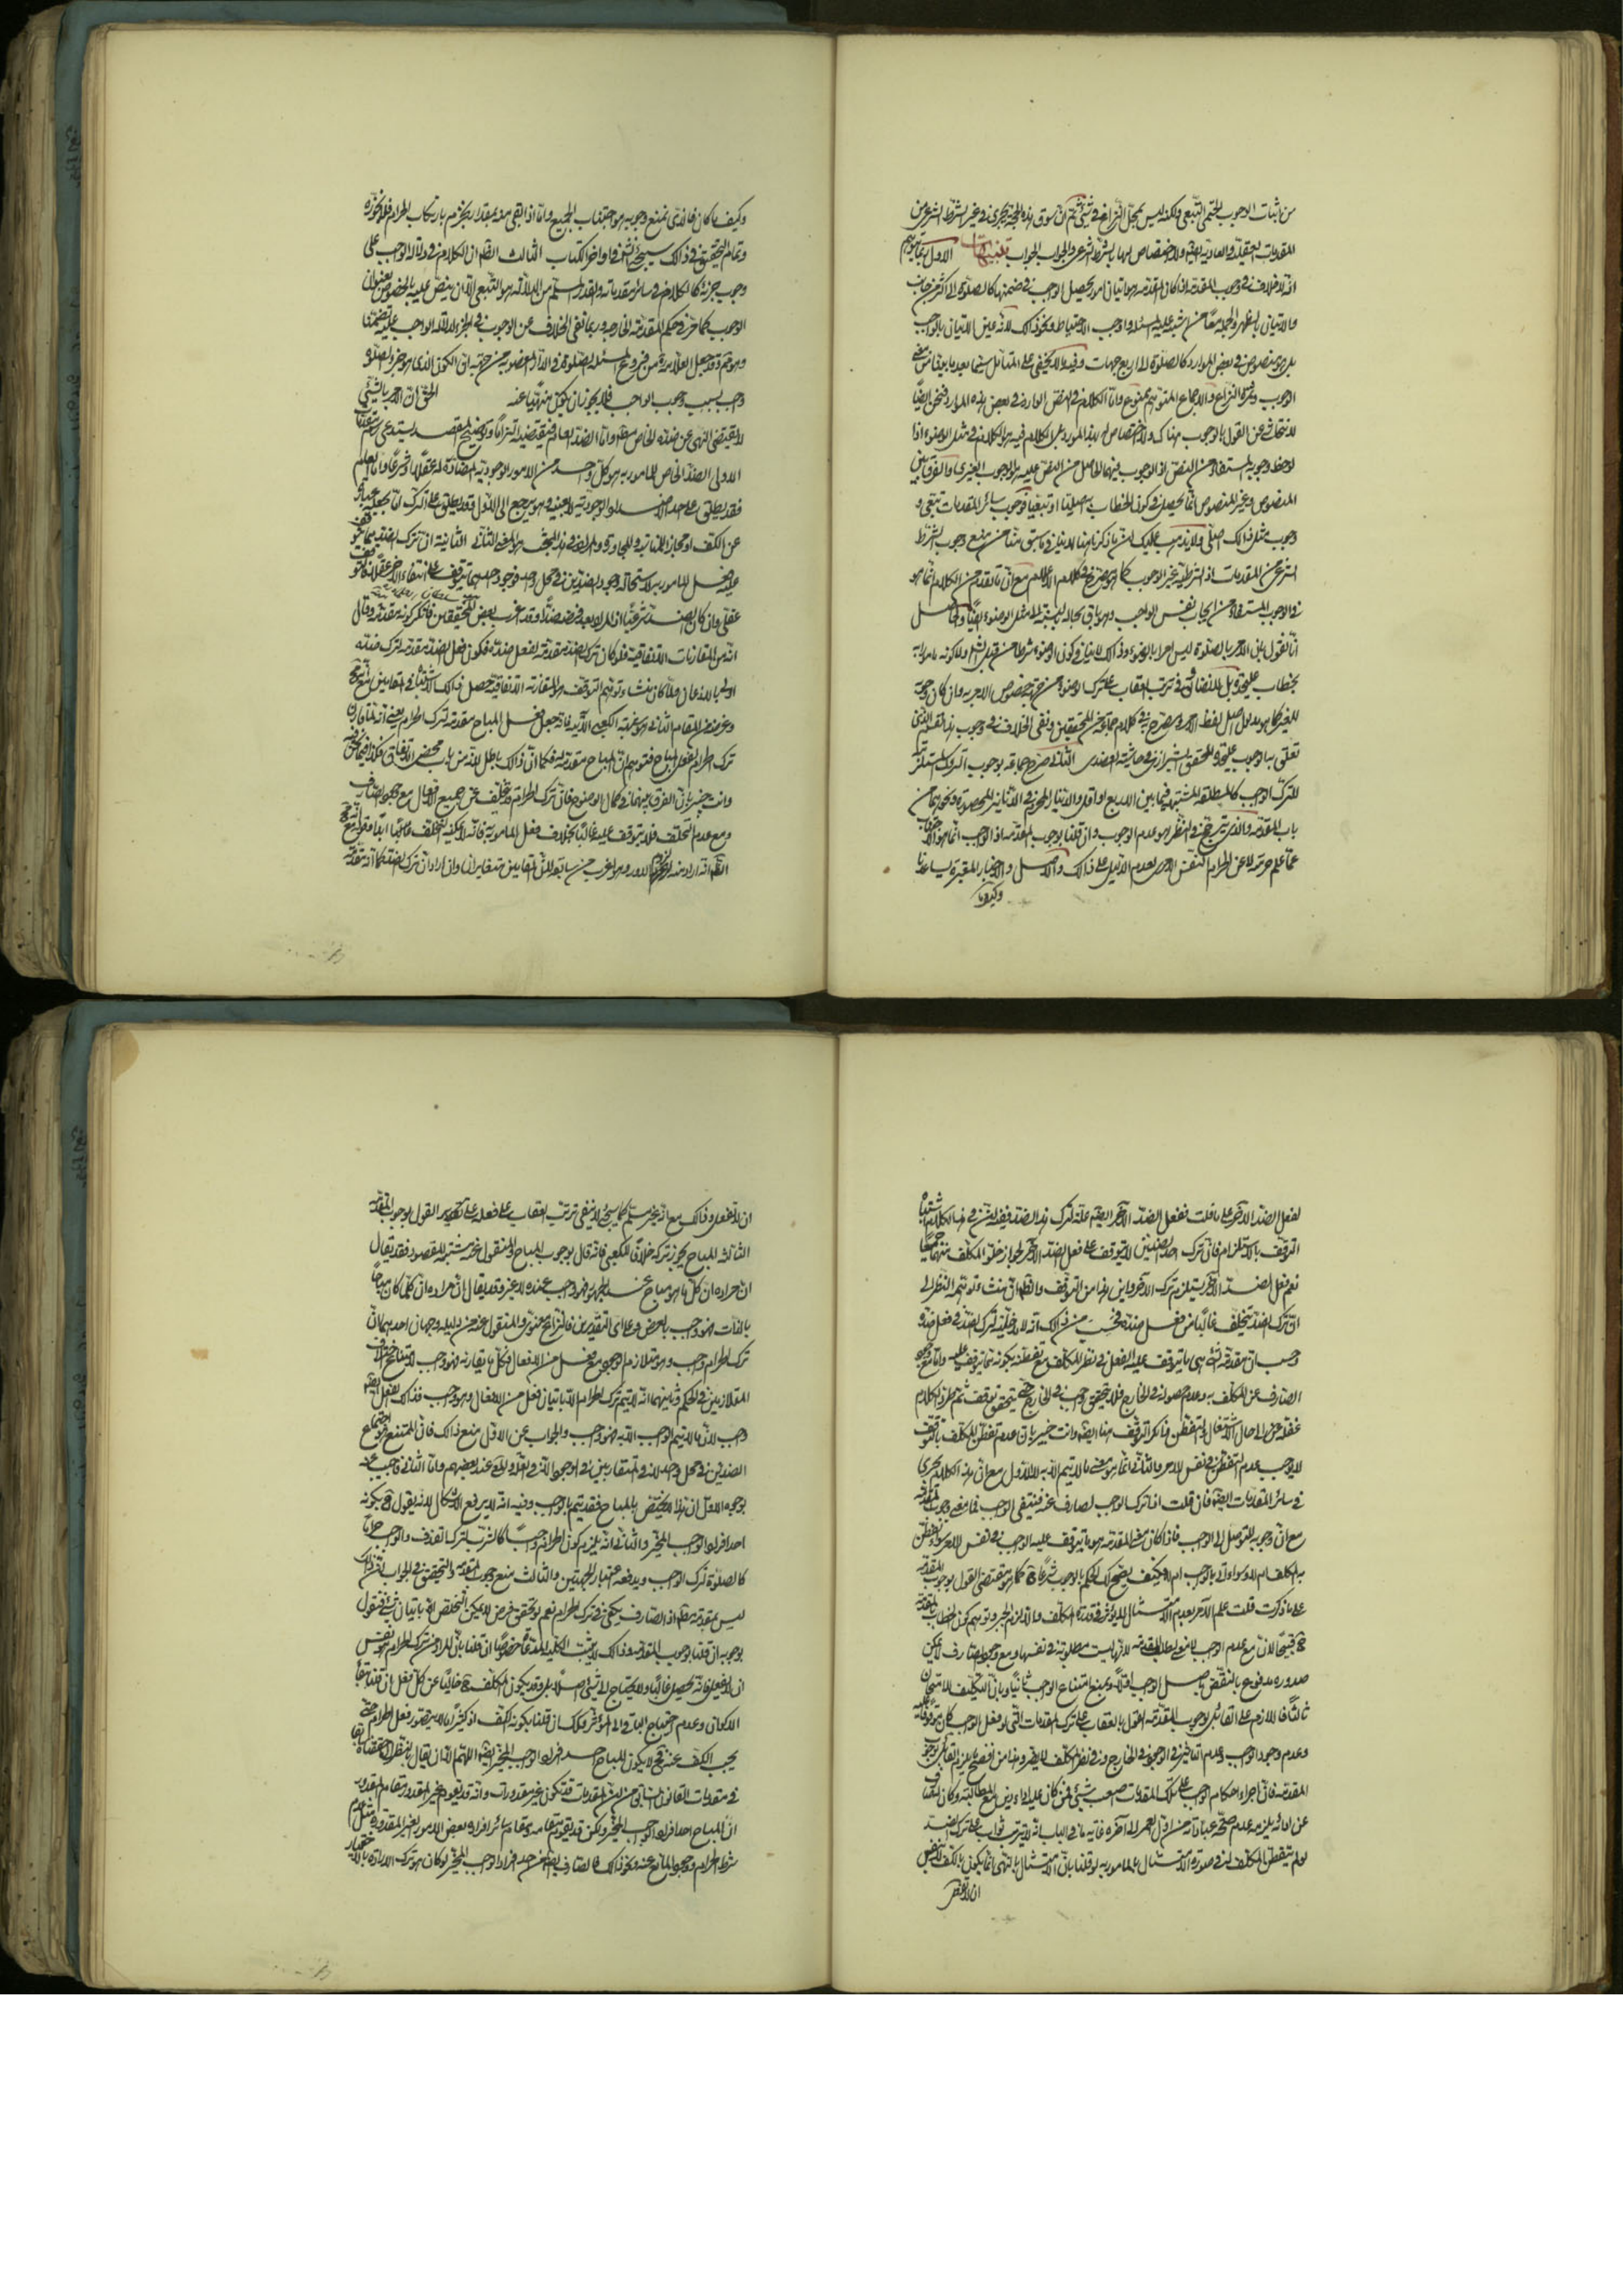 من اثبات الوجوب الحتمي التبعي ولكنه ليس بمحل النزاع في شيء ثم ان سوق هذه الحجة يجري في غير الشرط الشرعي من
المقدمات العقلية والعادية ايضا ولا اختصاص لها بالشرط الشرعي والجواب الجواب تنبيهات الاول ربما يتوهم
انه لا خلاف في وجوب المقدمة اذا كان المقدمة هو اتيان امور يحصل الواجب في ضمنها كالصلوة الى اكثر من جانب
والاتيان بالظهر والجمعة معا من اشتبه عليه المسئلة واوجب الاحتياط ونحو ذلك لانه عين الاتيان بالواجب
بل هو منصوص في بعض الموارد كالصلوة الى اربع جهات وفيه ما لا يخفى على المتأمل سيما بعد ما بيناه من معنى
الوجوب وثمرة النزاع والاجماع المتوهم ممنوع واما الكلام في النص الوارد في بعض هذه الموارد فنحن ايضا
لا نتحاشى عن القول بالوجوب هناك ولا اختصاص لهذا المورد بل الكلام فيه هو الكلام في مثل الوضوء اذا
لوحظ وجوبه المستفاد من النص اذ الوجوب فيهما الحاصل من النص عليه هو الوجوب الغيري والفرق بين
المنصوص وغير المنصوص انما يحصل في كون الخطاب به اصليا او تبعيا فوجوب سائر المقدمات تبعي و
وجوب مثل ذلك اصلي ولا يذهب عليك ان ما ذكرنا هنا لا ينافي ما سبق منا من منع وجوب الشرط
الشرعي من المقدمات اذ الشرطية غير الوجوب كما هو مصرح في كلامهم الاعلام مع ان ما تقدم من الكلام انما هو
في الوجوب المستفاد من ايجاب نفس الواجب وهو باق بحاله بالنسبة الى مثل الوضوء ايضا والحاصل
انا نقول بان الامر بالصلوة ليس امرا بالوضوء وذلك لا ينافي كون الوضوء شرطا من قبل الشرع ولا كونه مأمورا به
بخطاب عليحدة بل لا يضايق في ترتب العقاب على ترك الوضوء من جهة خصوص الامر به وان كان وجوبه
للغير كما هو مدلول اصل لفظ الامر وصرح به في كلام جماعة من المحققين ونفي الخلاف في وجوب هذا القسم الذي
تعلق به الوجوب عليحدة المحقق الشيرازي في حاشيته العضدي الثاني صرح جماعة بوجوب التروك المستلزمة
للترك الواجب كالمطلقة المشتبهة فيما بين الاربع او اقل والاناء المحرم في الاواني المحصورة ونحوهما من
باب المقدمة والذي يترجح في النظر هو عدم الوجوب وان قلنا بوجوب المقدمة اذ الواجب انما هو الاجتناب
عما علم حرمته لا عن الحرام النفس الامري لعدم الدليل على ذلك والاصل والاخبار المعتبرة يساعدنا
وكيف ما
وكيف ما كان فالذي نمنع وجوبه هو اجتناب الجميع واما اذا بقي منه بمقدار يجزم بارتكاب الحرام فلا نجوزه
وتمام التحقيق في ذلك سيجيء انشاء الله في اواخر الكتاب الثالث الظاهر ان الكلام في دلالة الواجب على
وجوب جزئه كالكلام في سائر مقدماته والقدر المسلم من الدلالة هو التبعي الا ان ينص عليه بالخصوص بعنوان
الوجوب كما مر في حكم المقدمة الخارجة وربما نفى الخلاف عن الوجوب في الجزء لدلالة الواجب عليه تضمنا
وهو ممنوع وقد جعل العلامة من فروع المسئلة الصلوة في الدار المغصوبة من جهة ان الكون الذي هو جزء الصلوة
واجب بسبب وجوب الواجب فلا يجوز ان يكون منهيا عنه الحق ان الامر بالشيء
لا يقتضي النهي عن ضده الخاص مطلقا واما الضد العام فيقتضيه التزاما وتوضيح المقصد يستدعي رسم مقدمات
الاولى الضد الخاص للمأمور به هو كل واحد من الامور الوجودية المضادة له عقلا او شرعا واما العام
فقد يطلق على احد الاضداد الوجودية لا بعينه وهو يرجع الى الاول وقد يطلق على الترك اما بجعله عبارة
عن الكف او مجازا للمناسبة والمجاورة والمراد في هذا المبحث هو المعنى الثاني الثانية ان ترك الضد مما يتوقف
عليه فعل المأمور به لاستحالة وجود الضدين في محل واحد فوجود احدهما يتوقف على انتفاء الاخر عقلا فالتوقف
عقلي وان كان الضد شرعيا اذ المراد بعد فرضه ضدا وقد اغرب بعض المحققين فانكر كونه مقدمة وقال
انه من المقارنات الاتفاقية فلو كان ترك الضد مقدمة لفعل ضده فكون فعل الضد مقدمة لترك ضده
اولى بالاذعان وقال ان منشاء توهم التوقف هو المقارنة الاتفاقية حصل ذلك الاشتباه في المقامين مع انه محال
وغرضه من المقام الثاني هو شبهة الكعبي الآتية فانه جعل فعل المباح مقدمة لترك الحرام يعني انه لما قارن
ترك الحرام لفعل المباح فتوهم ان المباح مقدمة له فكما ان ذلك باطل لانه من باب محض الاتفاق فكذا فيما نحن فيه
وانت خبير بان الفرق بينهما في كمال الوضوح فان ترك الحرام قد يتخلف عن جميع الافعال مع وجود الصارف
ومع عدم التخلف فلا يتوقف عليه غالبا بخلاف فعل المأمور به فانه لا يمكنه التخلف ابدا
الظاهر انه اراد منه لزوم الدور وهو اغرب من سابقه لان المقامين متغايران وان اراد ان ترك الضد كما انه مقدمة
لفعل الضد الآخر على ما قلت ففعل الضد الآخر ايضا علة لترك هذا الضد ففيه ان منشأ هذا الكلام اشتباه
التوقف بالاستلزام فان ترك احد الضدين لا يتوقف على فعل الضد الآخر لجواز خلو المكلف عنهما جميعا
نعم فعل الضد الآخر يستلزم ترك الآخر واين هذا من التوقف والظاهر ان منشاء توهمه النظر الى
ان ترك الضد يتخلف غالبا من فعل ضده فحسب من ذلك انه لا مدخلية لترك الضد في فعل ضده
وحسب ان مقدمة الشيء هي ما يتوقف عليه الفعل في نظر المكلف مع تفطنه بكونه مما يتوقف عليه واما مع وجود
الصارف عن المكلف به وعدم حصوله في الخارج فلا تحقق واجب في الخارج حتى يتحقق توقف ثم طرد الكلام
غفلة عن الى حال الاشتغال والتفطن فانكر التوقف هنا ايضا وانت خبير بان عدم تفطن المكلف بالتوقف
لا يوجب عدم التوقف في نفس الامر والثاني انما هو معنى ما لا يتم الا به لا الاول مع ان هذا الكلام يجري
في سائر المقدمات ايضا فان قلت اذا ترك الواجب لصارف عنه فينتفي الواجب فما معنى وجوب المقدمة
مع ان وجوبه للتوصل الى الواجب فاذا كان معنى المقدمة هو ما يتوقف عليه الواجب في نفس الامر سواء تفطن
به المكلف ام لا وسواء اتى بالواجب ام لا فكيف يصح لك الحكم بالوجوب شرعا كما هو مقتضى القول بوجوب المقدمة
على ما ذكرت قلت علم الآمر بعدم الامتثال لا يؤثر في قدرة المكلف والا لزم الجبر وتوهم كون الخطاب بالمقدمة
ح قبيحا لان مع عدم الواجب لا معنى لطلب المقدمة لانها ليست مطلوبة في نفسها ومع وجود الصارف لا يمكن
صدوره مدفوع بالنقض باصل الواجب اولا وبمنع امتناع الواجب ثانيا وبان التكليف للامتحان
ثالثا فاللازم على القائل بوجوب المقدمة القول بالعقاب على ترك المقدمات التي لو فعل الواجب كان موقوفا عليه
وعدم وجود الواجب وعدم التأخير في الوجود في الخارج وفي نظر المكلف لا يضر وهذا من افضح ما يلزم القائل بوجوب
المقدمة فان اجراء احكام الواجب على تلك المقدمات صعب شيء فمن كان عليه اداء دين مع المطالبة وكان الصارف
عن ادائه يلزمه عدم صحة عباداته من اول العمر الى آخره غاية ما في الباب انه لا يترتب ثواب على ترك الضد
لو لم يتفطن المكلف له في صورة الامتثال بالمأمور به لو قلنا بان الامتثال بالنهي انما يكون بالكف لا بنفس
ان لا يفعل
ان لا يفعل وذلك مع انه غير مسلم كما سيجيء لا ينفي ترتب العقاب على فعله على تقدير القول بوجوب المقدمة
الثالثة المباح يجوز تركه خلافا للكعبي فانه قال بوجوب المباح والمنقول عنه مشتبه المقصود فقد يقال
ان مراده ان كل ما هو مباح عند الجمهور فهو واجب عنده لا غير وقد يقال ان مراده ان كلما كان مباحا
بالذات فهو واجب بالعرض وعلى اي التقديرين فالنزاع معنوي والمنقول عنه من دليله وجهان احدهما ان
ترك الحرام واجب وهو متلازم الوجود مع فعل من الافعال فكل ما يقارنه فهو واجب لامتناع اختلاف
المتلازمين في الحكم وثانيهما انه لا يتم ترك الحرام الا باتيان فعل من الافعال وهو واجب فذلك الفعل ايضا
واجب لان ما لا يتم الواجب الا به فهو واجب والجواب عن الاول منع ذلك فان الممتنع هو اجتماع
الضدين في محل واحد لا في المتقارنين في الوجود واما الثاني فاجيب عنه
بوجوه الاول ان هذا لا يختص بالمباح فقد يتم بالواجب وفيه انه لا يدفع الاشكال لانه يقول ح بكونه
احد افراد الواجب المخير والثاني انه يلزم كون الحرام واجبا كالشرب لترك القذف والواجب حراما
كالصلوة لترك الواجب ويدفعه اعتبار الجهتين والثالث منع وجوب المقدمة والتحقيق في الجواب ان ذلك
ليس بمقدمة مطلقا اذ الصارف يكفي في ترك الحرام نعم لو تحقق فرض لا يمكن التخلص الا باتيان شيء فنقول
بوجوبه ان قلنا بوجوب المقدمة وذلك لا يثبت الكلية المدعاة خصوصا ان قلنا بان المراد من ترك الحرام هو نفس
ان لا يفعل فانه يحصل غالبا ولا يحتاج الى شيء اصلا بل وقد يكون المكلف ح خاليا عن كل فعل ان قلنا ببقاء
الاكوان وعدم احتياج الباقي الى المؤثر وكذلك ان قلنا بكونه الكف اذ كثيرا ما لا يتصور فعل الحرام حتى
يجب الكف عنه فح لا يكون المباح احد افراد الواجب المخير ايضا اللهم الا ان يقال
في مقدمات القانون السابق من ان المقدمات قد تكون غير مقدورات وانه قد يقوم غير المقدور مقام المقدور
ان المباح احد افراد الواجب المخير ولكن قد يقوم مقامه ومقام سائر افراده بعض الامور الغير المقدورة مثل عدم
شرط الحرام ووجود المانع عنه ونحو ذلك فالصارف ايضا من احد افراد الواجب المخير لو كان هو ترك الارادة بالاختيار